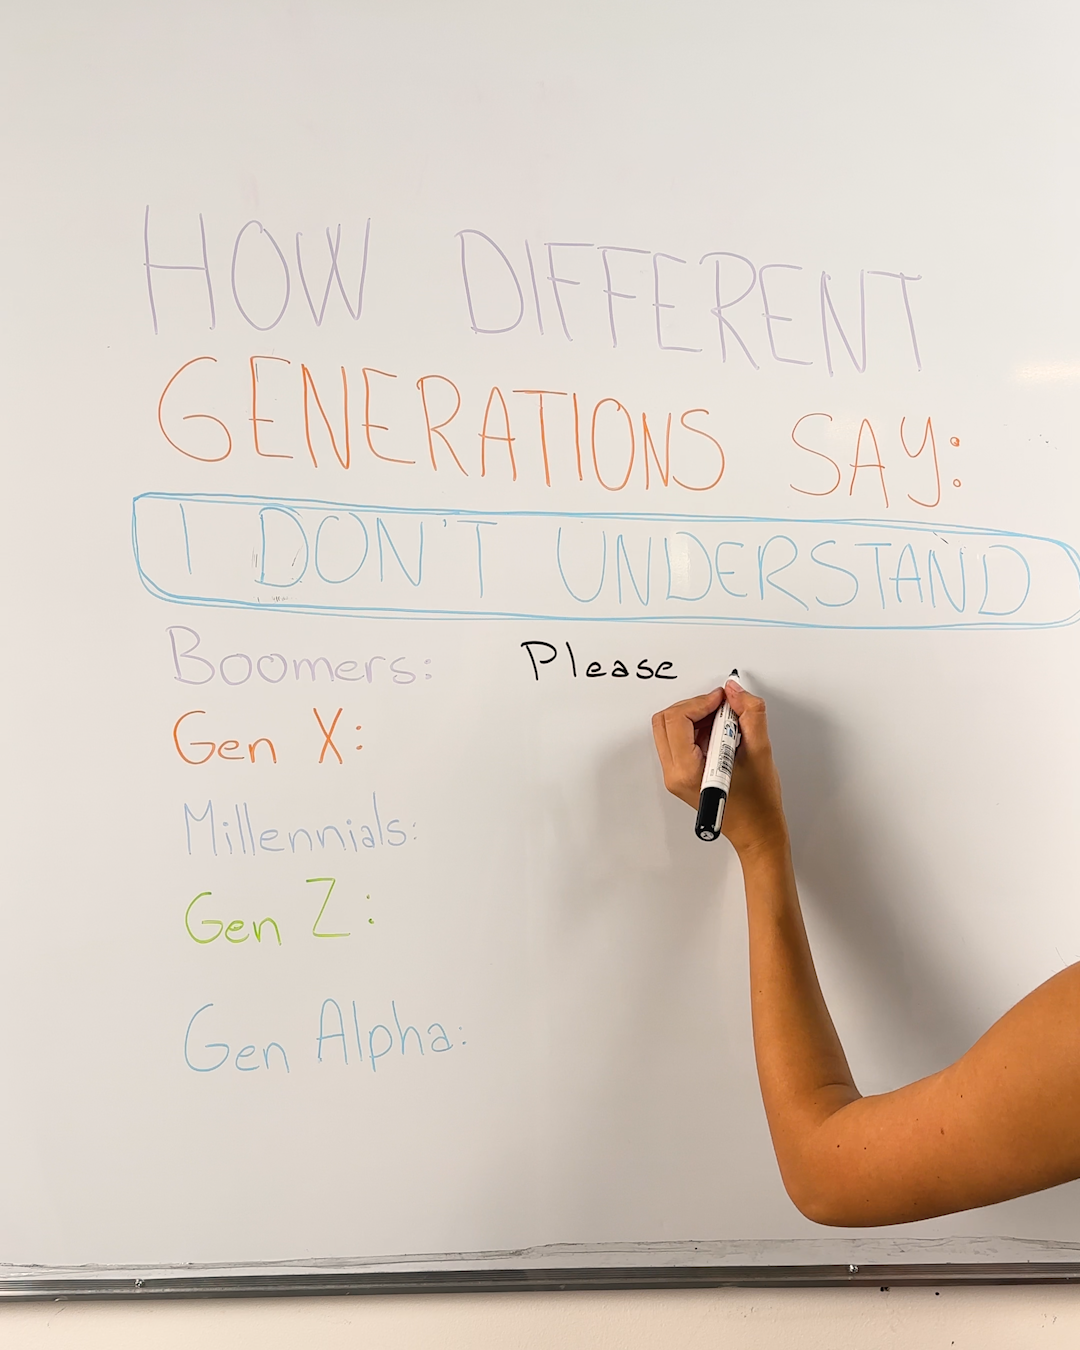 HOW DIFFERENT
GENERATIONS SAY:
I DON'T UNDERSTAND
Boomers: Please
Gen X:
Millennials:
Gen Z:
Gen Alpha: